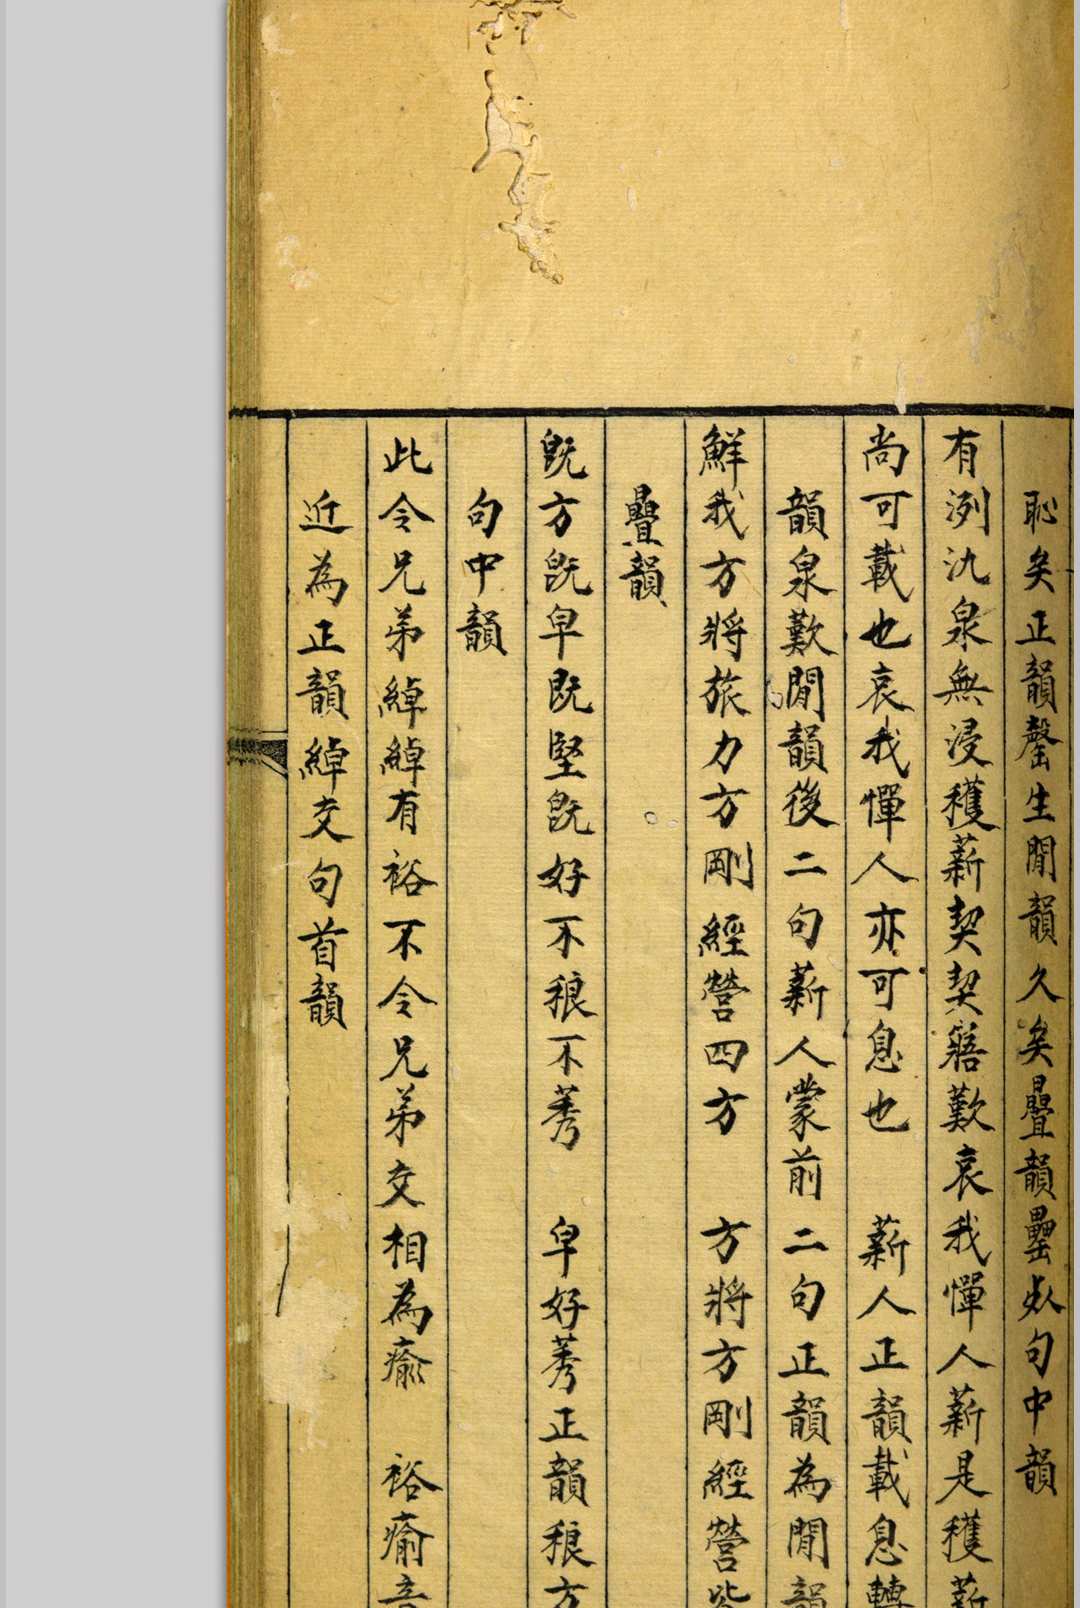 恥矣正韻罄生閒韻久矣疊韻罍𡘋句中韻
有洌氿泉無浸穫薪契契寤歎哀我憚人薪是穫薪
尚可載也哀我憚人亦可息也　薪人正韻載息轉
韻泉歎閒韻後二句薪人蒙前二句正韻為閒韻
鮮我方將旅力方剛經營四方　方將方剛經營皆
疊韻
旣方旣皁既堅旣好不稂不莠　皁好莠正韻稂方
句中韻
此令兄弟綽綽有裕不令兄弟交相為瘉　裕瘉音
近為正韻綽交句首韻